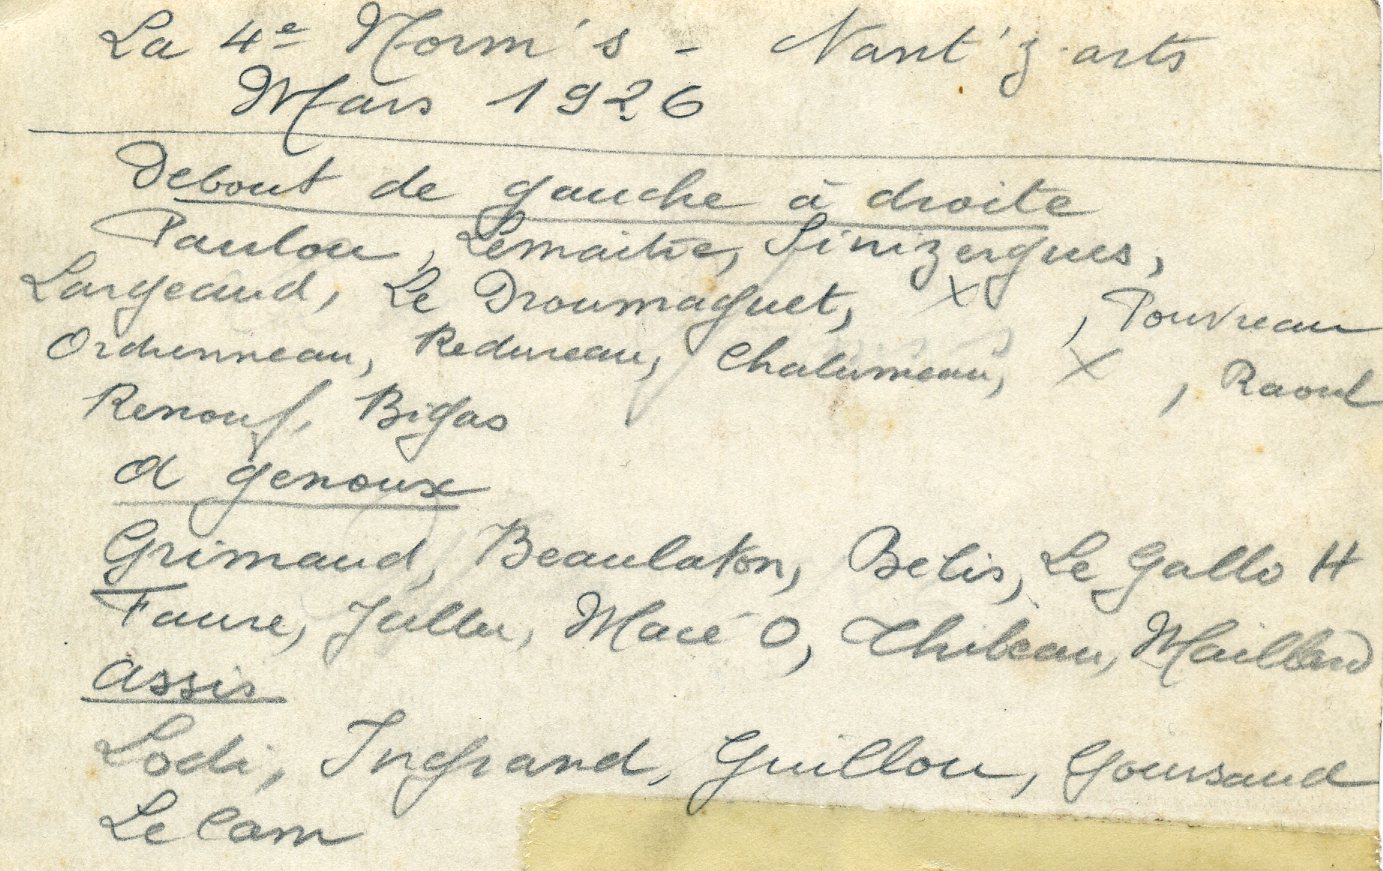 La 4e Norm's - Nant'z-arts
Mars 1926
Debout de gauche à droite
Paulou, Lemaitre, Sinizergues,
Largeaud, Le Droumaguet, X , Pouvreau
Ordronneau, Redureau, Chalumeau, X , Raoul
Renouf, Bigas
A genoux
Grimaud, Beaulaton, Belis, Le Gallo H
Faure, Macé O, Thibeau, Maillard
Assis
Lodi, Ingrand, Guillou, Goursaud
Le Cam